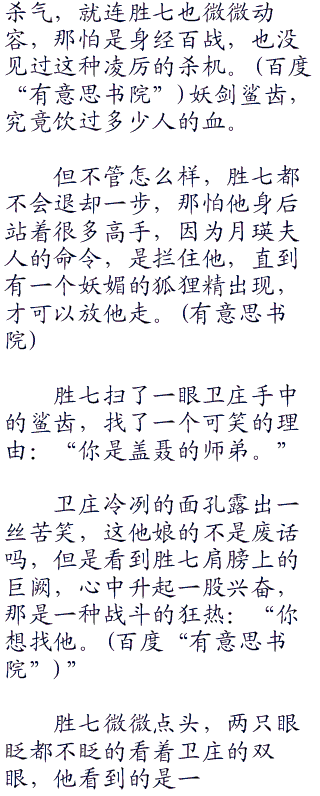 杀气，就连胜七也微微动
容，那怕是身经百战，也没
见过这种凌厉的杀机。(百度
“有意思书院”)妖剑鲨齿，
究竟饮过多少人的血。
但不管怎么样，胜七都
不会退却一步，那怕他身后
站着很多高手，因为月瑛夫
人的命令，是拦住他，直到
有一个妖媚的狐狸精出现，
才可以放他走。(有意思书
院)
胜七扫了一眼卫庄手中
的鲨齿，找了一个可笑的理
由：“你是盖聂的师弟。”
卫庄冷冽的面孔露出一
丝苦笑，这他娘的不是废话
吗，但是看到胜七肩膀上的
巨阙，心中升起一股兴奋，
那是一种战斗的狂热：“你
想找他。(百度“有意思书
院”)”
胜七微微点头，两只眼
眨都不眨的看着卫庄的双
眼，他看到的是一